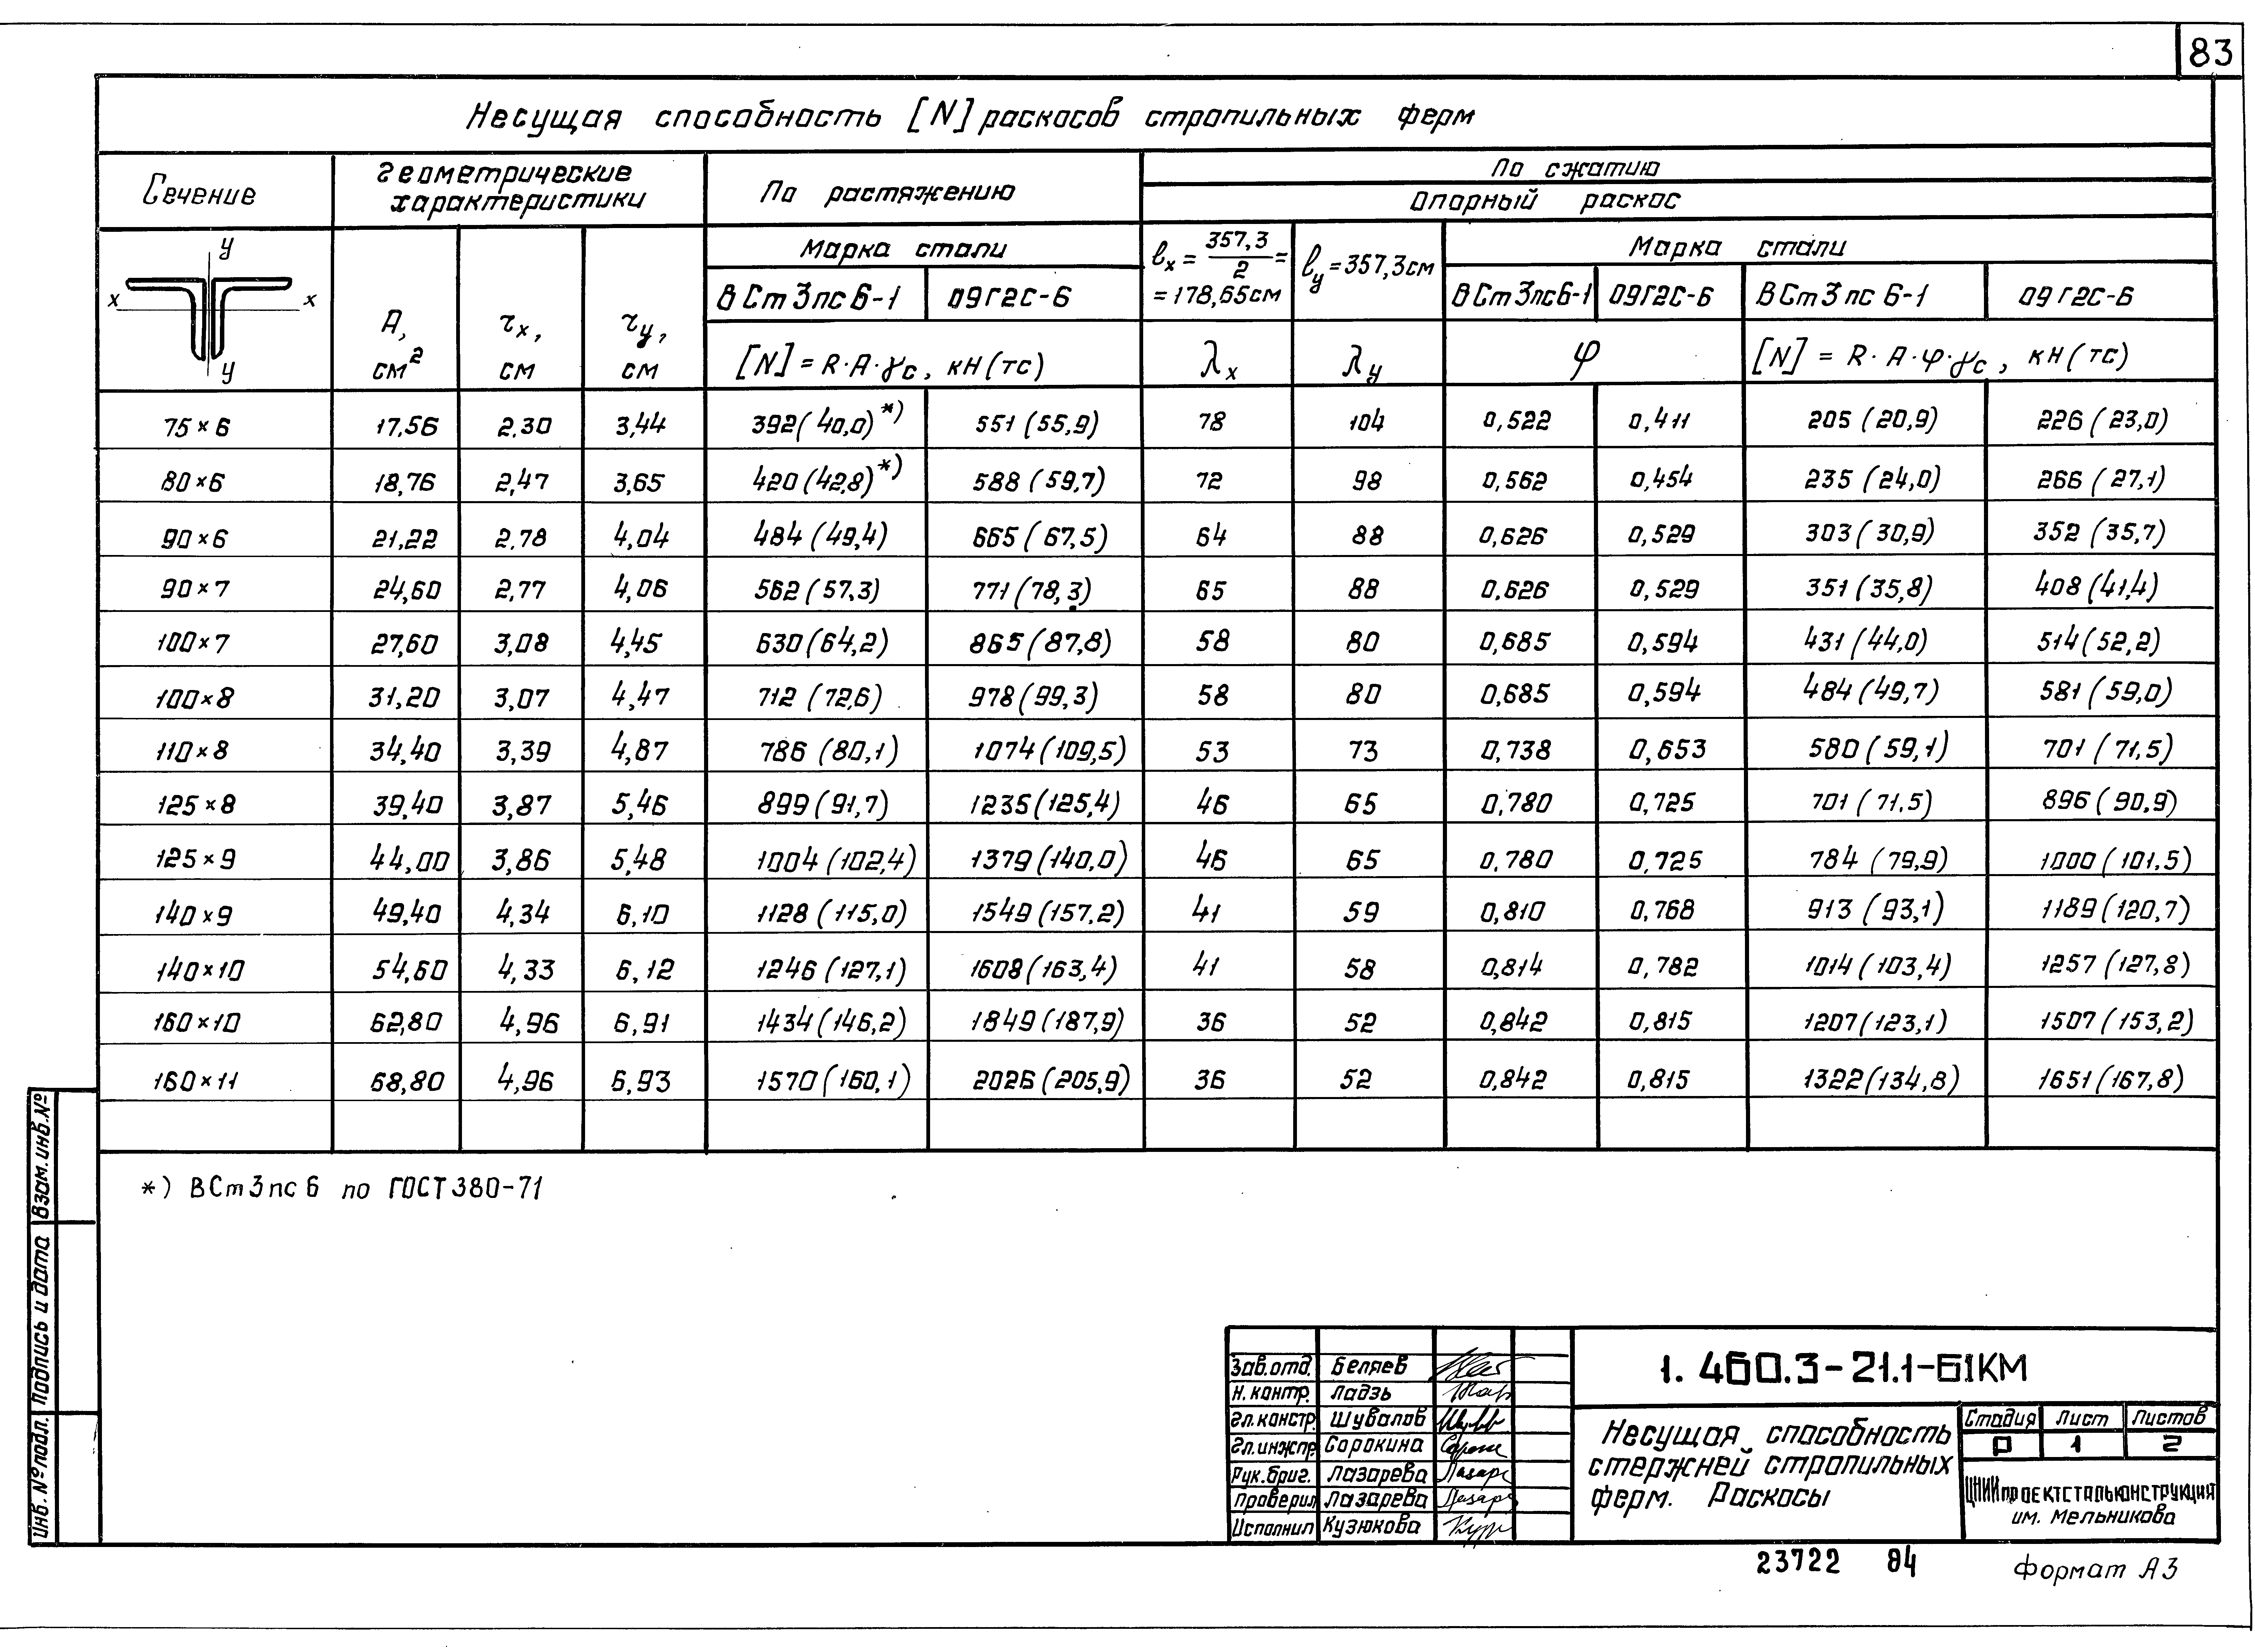 83
Несущая способность [N] раскосов стропильных ферм
Сечение
Геометрические характеристики
По растяжению
По сжатию
Опорный раскос
y
x x
y
A, см²
τx, см
τy, см
Марка стали
ВСт3пс6-1 09Г2С-6
[N] = R·A·γc, кН(тс)
lx = 357,3/2 = = 178,65см
ly = 357,3см
λx
λy
Марка стали
ВСт3пс6-1 09Г2С-6 ВСт3пс6-1 09Г2С-6
φ
[N] = R·A·φ·γc, кН(тс)
75×6 17,56 2,30 3,44 392(40,0)*) 551(55,9) 78 104 0,522 0,411 205(20,9) 226(23,0)
80×6 18,76 2,47 3,65 420(42,8)*) 588(59,7) 72 98 0,562 0,454 235(24,0) 266(27,1)
90×6 21,22 2,78 4,04 484(49,4) 665(67,5) 64 88 0,626 0,529 303(30,9) 352(35,7)
90×7 24,60 2,77 4,06 562(57,3) 771(78,3) 65 88 0,626 0,529 351(35,8) 408(41,4)
100×7 27,60 3,08 4,45 630(64,2) 865(87,8) 58 80 0,685 0,594 431(44,0) 514(52,2)
100×8 31,20 3,07 4,47 712(72,6) 978(99,3) 58 80 0,685 0,594 484(49,7) 581(59,0)
110×8 34,40 3,39 4,87 786(80,1) 1074(109,5) 53 73 0,738 0,653 580(59,1) 701(71,5)
125×8 39,40 3,87 5,46 899(91,7) 1235(125,4) 46 65 0,780 0,725 701(71,5) 896(90,9)
125×9 44,00 3,86 5,48 1004(102,4) 1379(140,0) 46 65 0,780 0,725 784(79,9) 1000(101,5)
140×9 49,40 4,34 6,10 1128(115,0) 1549(157,2) 41 59 0,810 0,768 913(93,1) 1189(120,7)
140×10 54,60 4,33 6,12 1246(127,1) 1608(163,4) 41 58 0,814 0,782 1014(103,4) 1257(127,8)
160×10 62,80 4,96 6,91 1434(146,2) 1849(187,9) 36 52 0,842 0,815 1207(123,1) 1507(153,2)
160×11 68,80 4,96 6,93 1570(160,1) 2026(205,9) 36 52 0,842 0,815 1322(134,8) 1651(167,8)
*) ВСт3пс6 по ГОСТ380-71
Инв.№подл. Подпись и дата Взам.инв.№
Зав.отд. Беляев
Н.контр. Ладзь
Гл.констр. Шувалов
Гл.инжпр. Сорокина
Рук.бриг. Лазарева
Проверил Лазарева
Исполнил Кузюкова
1.460.3-21.1-61КМ
Несущая способность
стержней стропильных
ферм. Раскосы
Стадия Лист Листов
Р 1 2
ЦНИИпроектстальконструкция
им. Мельникова
23722 84
Формат А3